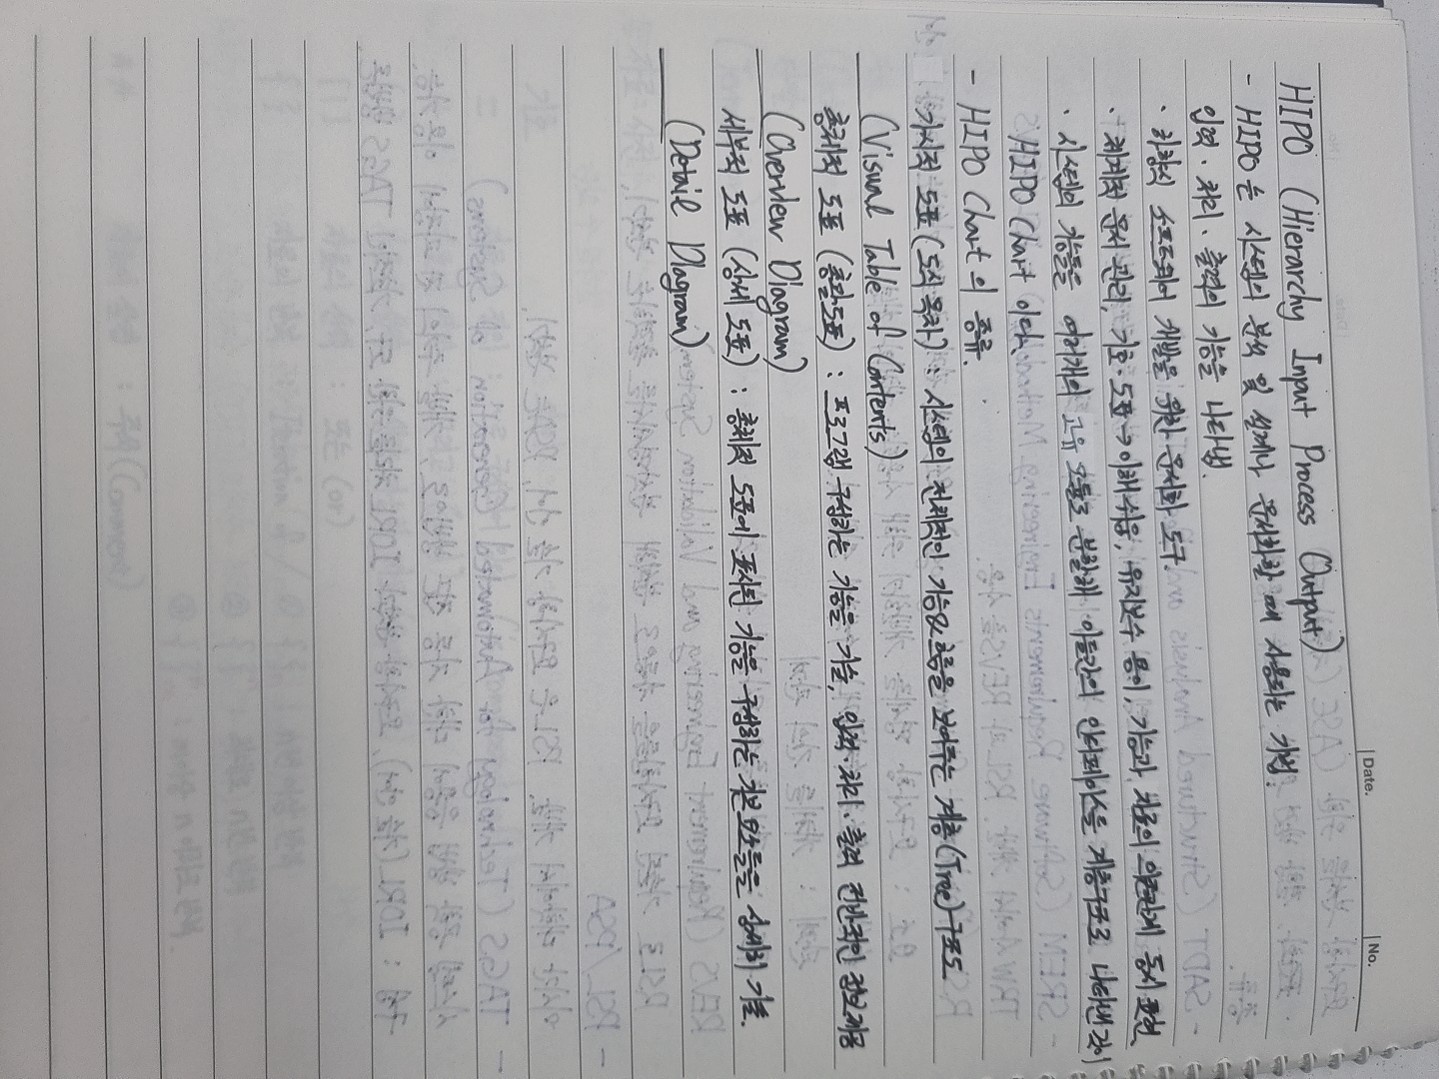 Date.
No.
HIPO (Hierarchy Input Process Output)
- HIPO는 시스템의 분석 및 설계나 문서화할 때 사용되는 기법.
입력·처리·출력의 기능을 나타냄.
· 하향식 소프트웨어 개발을 위한 문서화 도구
· 체계적 문서 관리, 기호·도표 → 이해 쉬움, 유지보수 용이, 기능과 자료의 의존관계 동시 표현
· 시스템의 기능을 여러개의 고유 모듈로 분할해 이들간의 인터페이스를 계층구조로 나타낸 것이
HIPO Chart 이다.
- HIPO Chart의 종류.
가시적 도표 (도식 목차) : 시스템의 전체적인 기능&흐름을 보여주는 계층(Tree)구조도
(Visual Table of Contents)
총체적 도표 (총괄도표) : 프로그램 구성하는 기능을 기술, 입력·처리·출력 전반적인 정보제공
(Overview Diagram)
세부적 도표 (상세 도표) : 총체적 도표에 표시된 기능을 구성하는 기본 요소들을 상세히 기술.
(Detail Diagram)